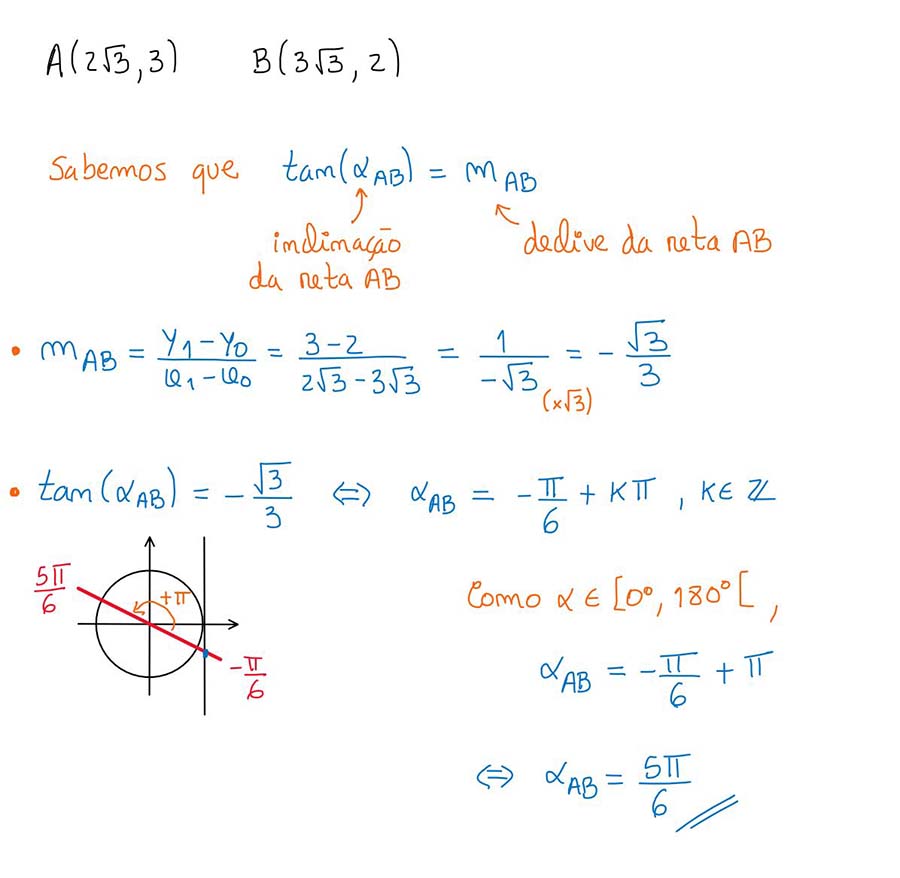 A(2√3, 3) B(3√3, 2)
Sabemos que tan(α_AB) = m_AB
inclinação da reta AB
declive da reta AB
• m_AB = (y₁ − y₀)/(x₁ − x₀) = (3 − 2)/(2√3 − 3√3) = 1/(−√3) (×√3) = −√3/3
• tan(α_AB) = −√3/3 ⇔ α_AB = −π/6 + kπ , k ∈ ℤ
5π/6
+π
−π/6
Como α ∈ [0°, 180°[ ,
α_AB = −π/6 + π
⇔ α_AB = 5π/6